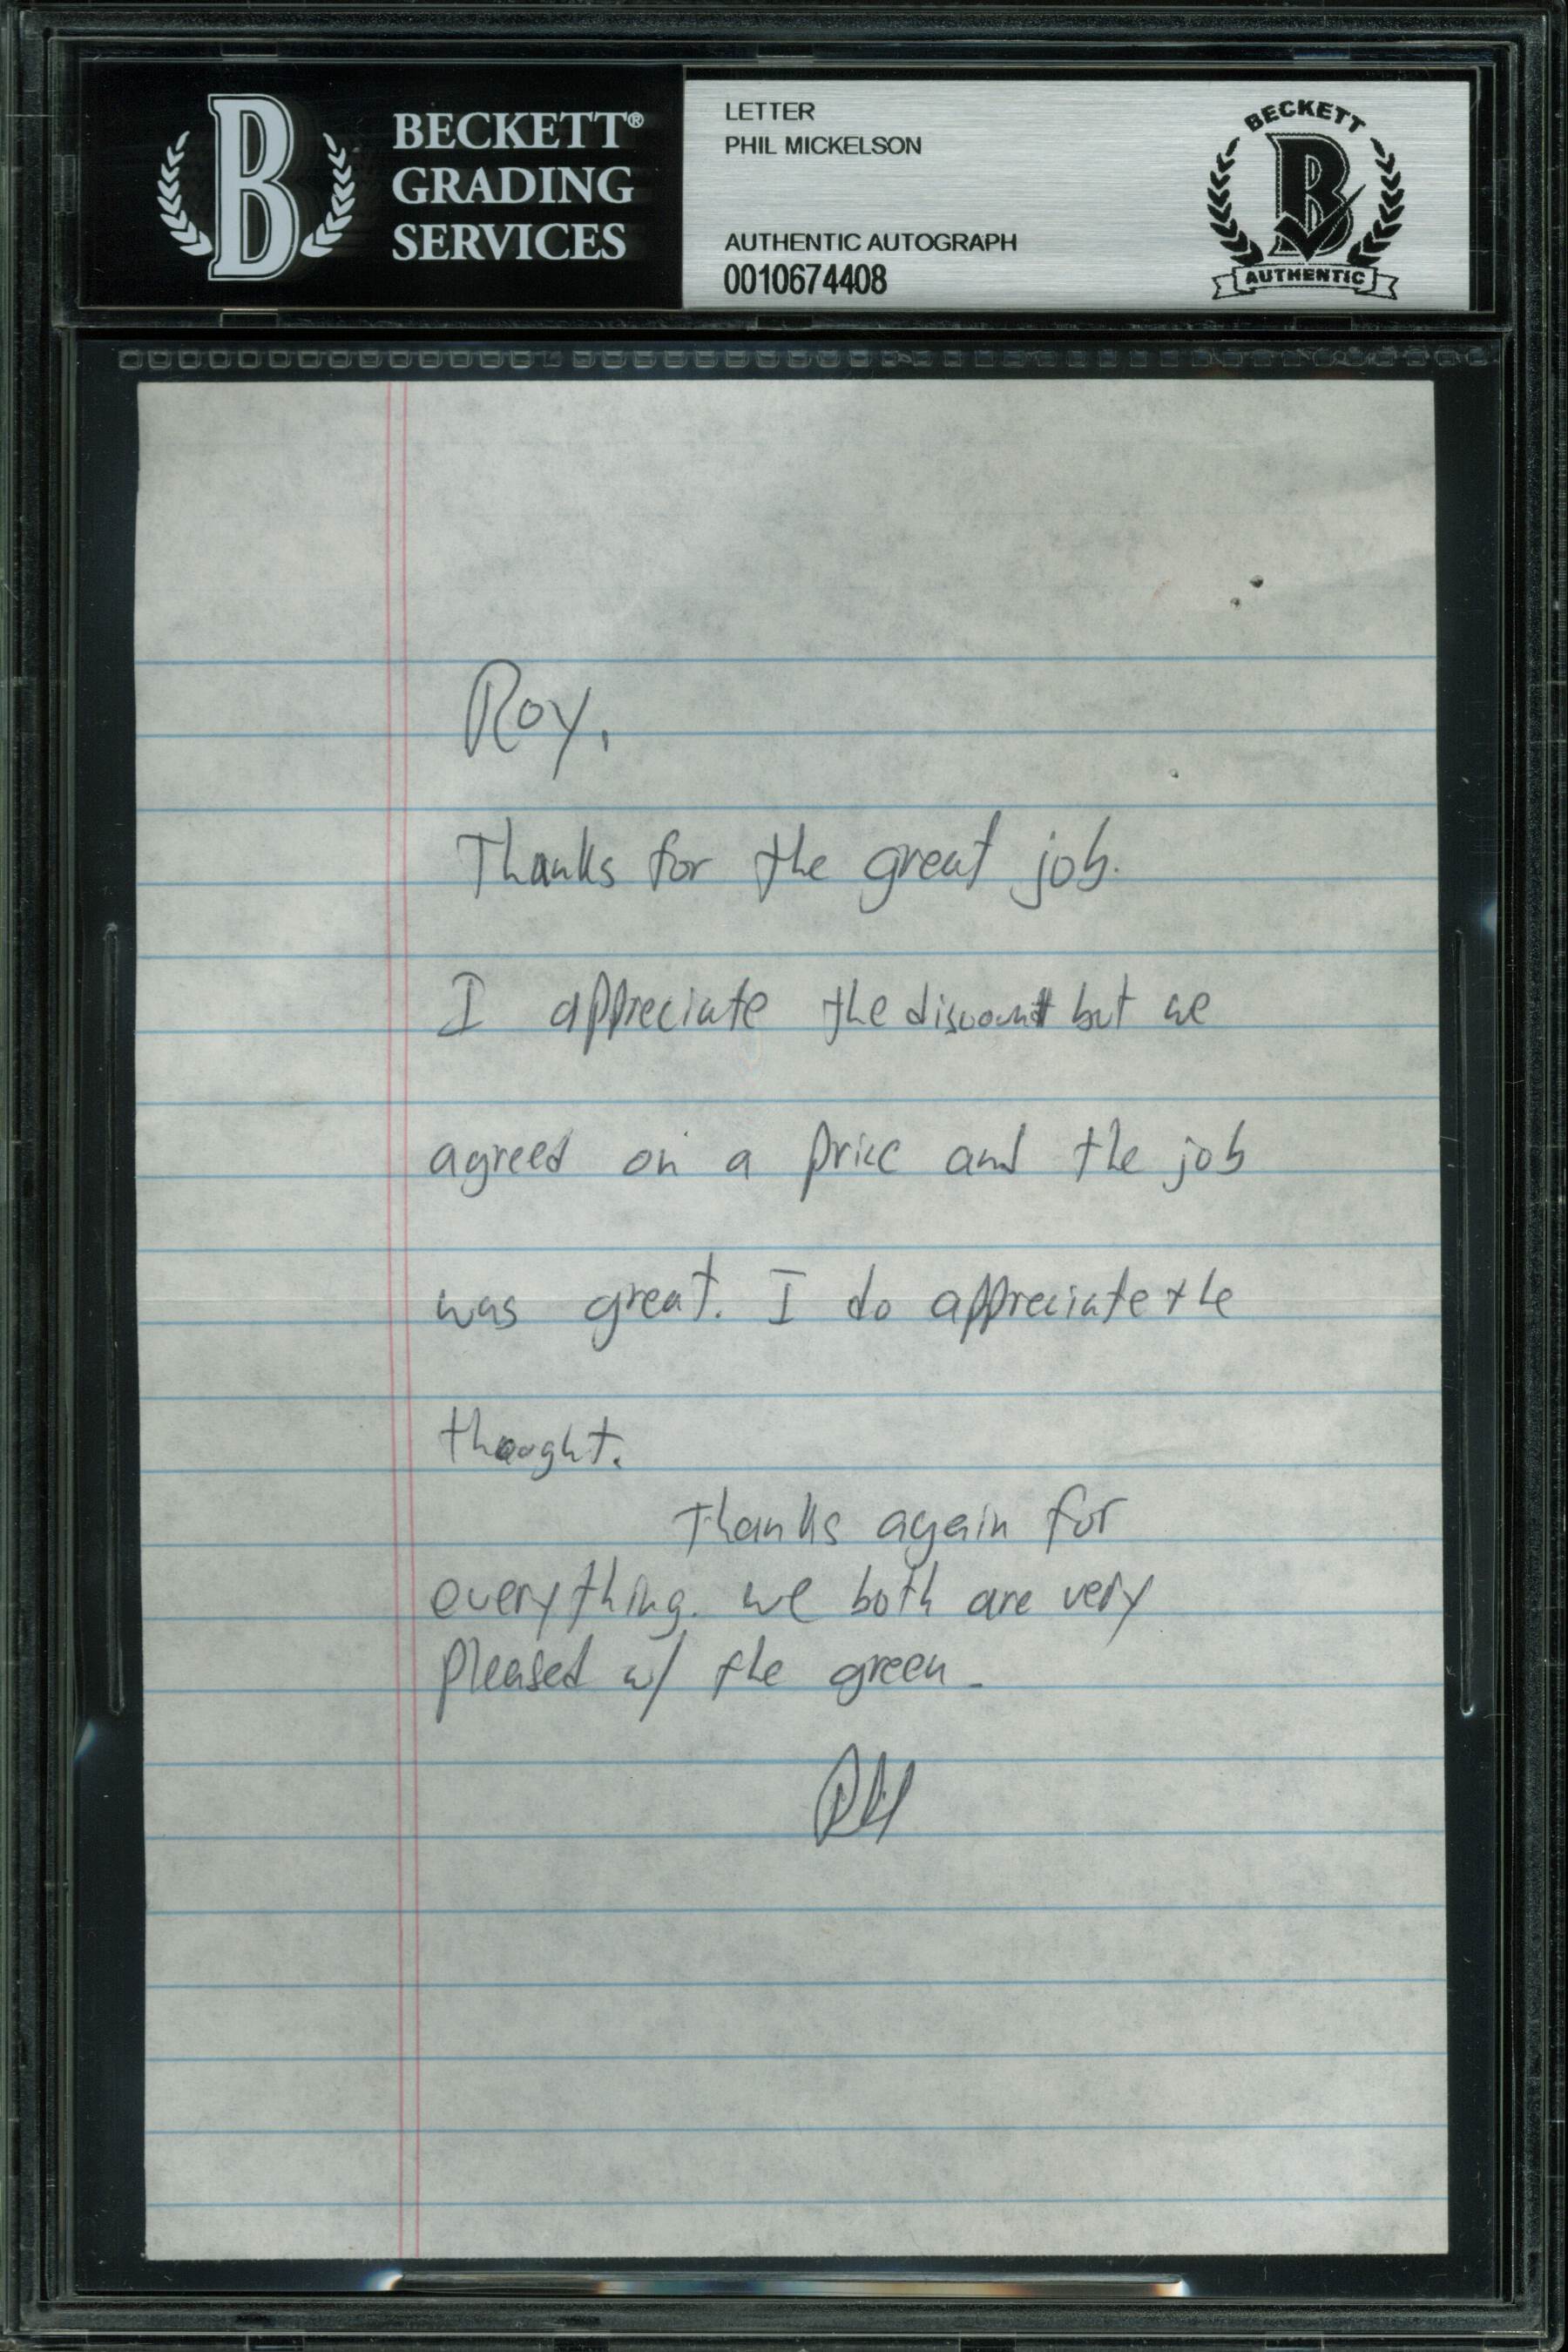 BECKETT®
GRADING
SERVICES
B
LETTER
PHIL MICKELSON
AUTHENTIC AUTOGRAPH
0010674408
BECKETT
B
AUTHENTIC
Roy,
Thanks for the great job.
I appreciate the discount but we
agreed on a price and the job
was great. I do appreciate the
thought.
Thanks again for
everything. we both are very
pleased w/ the green.
Phil